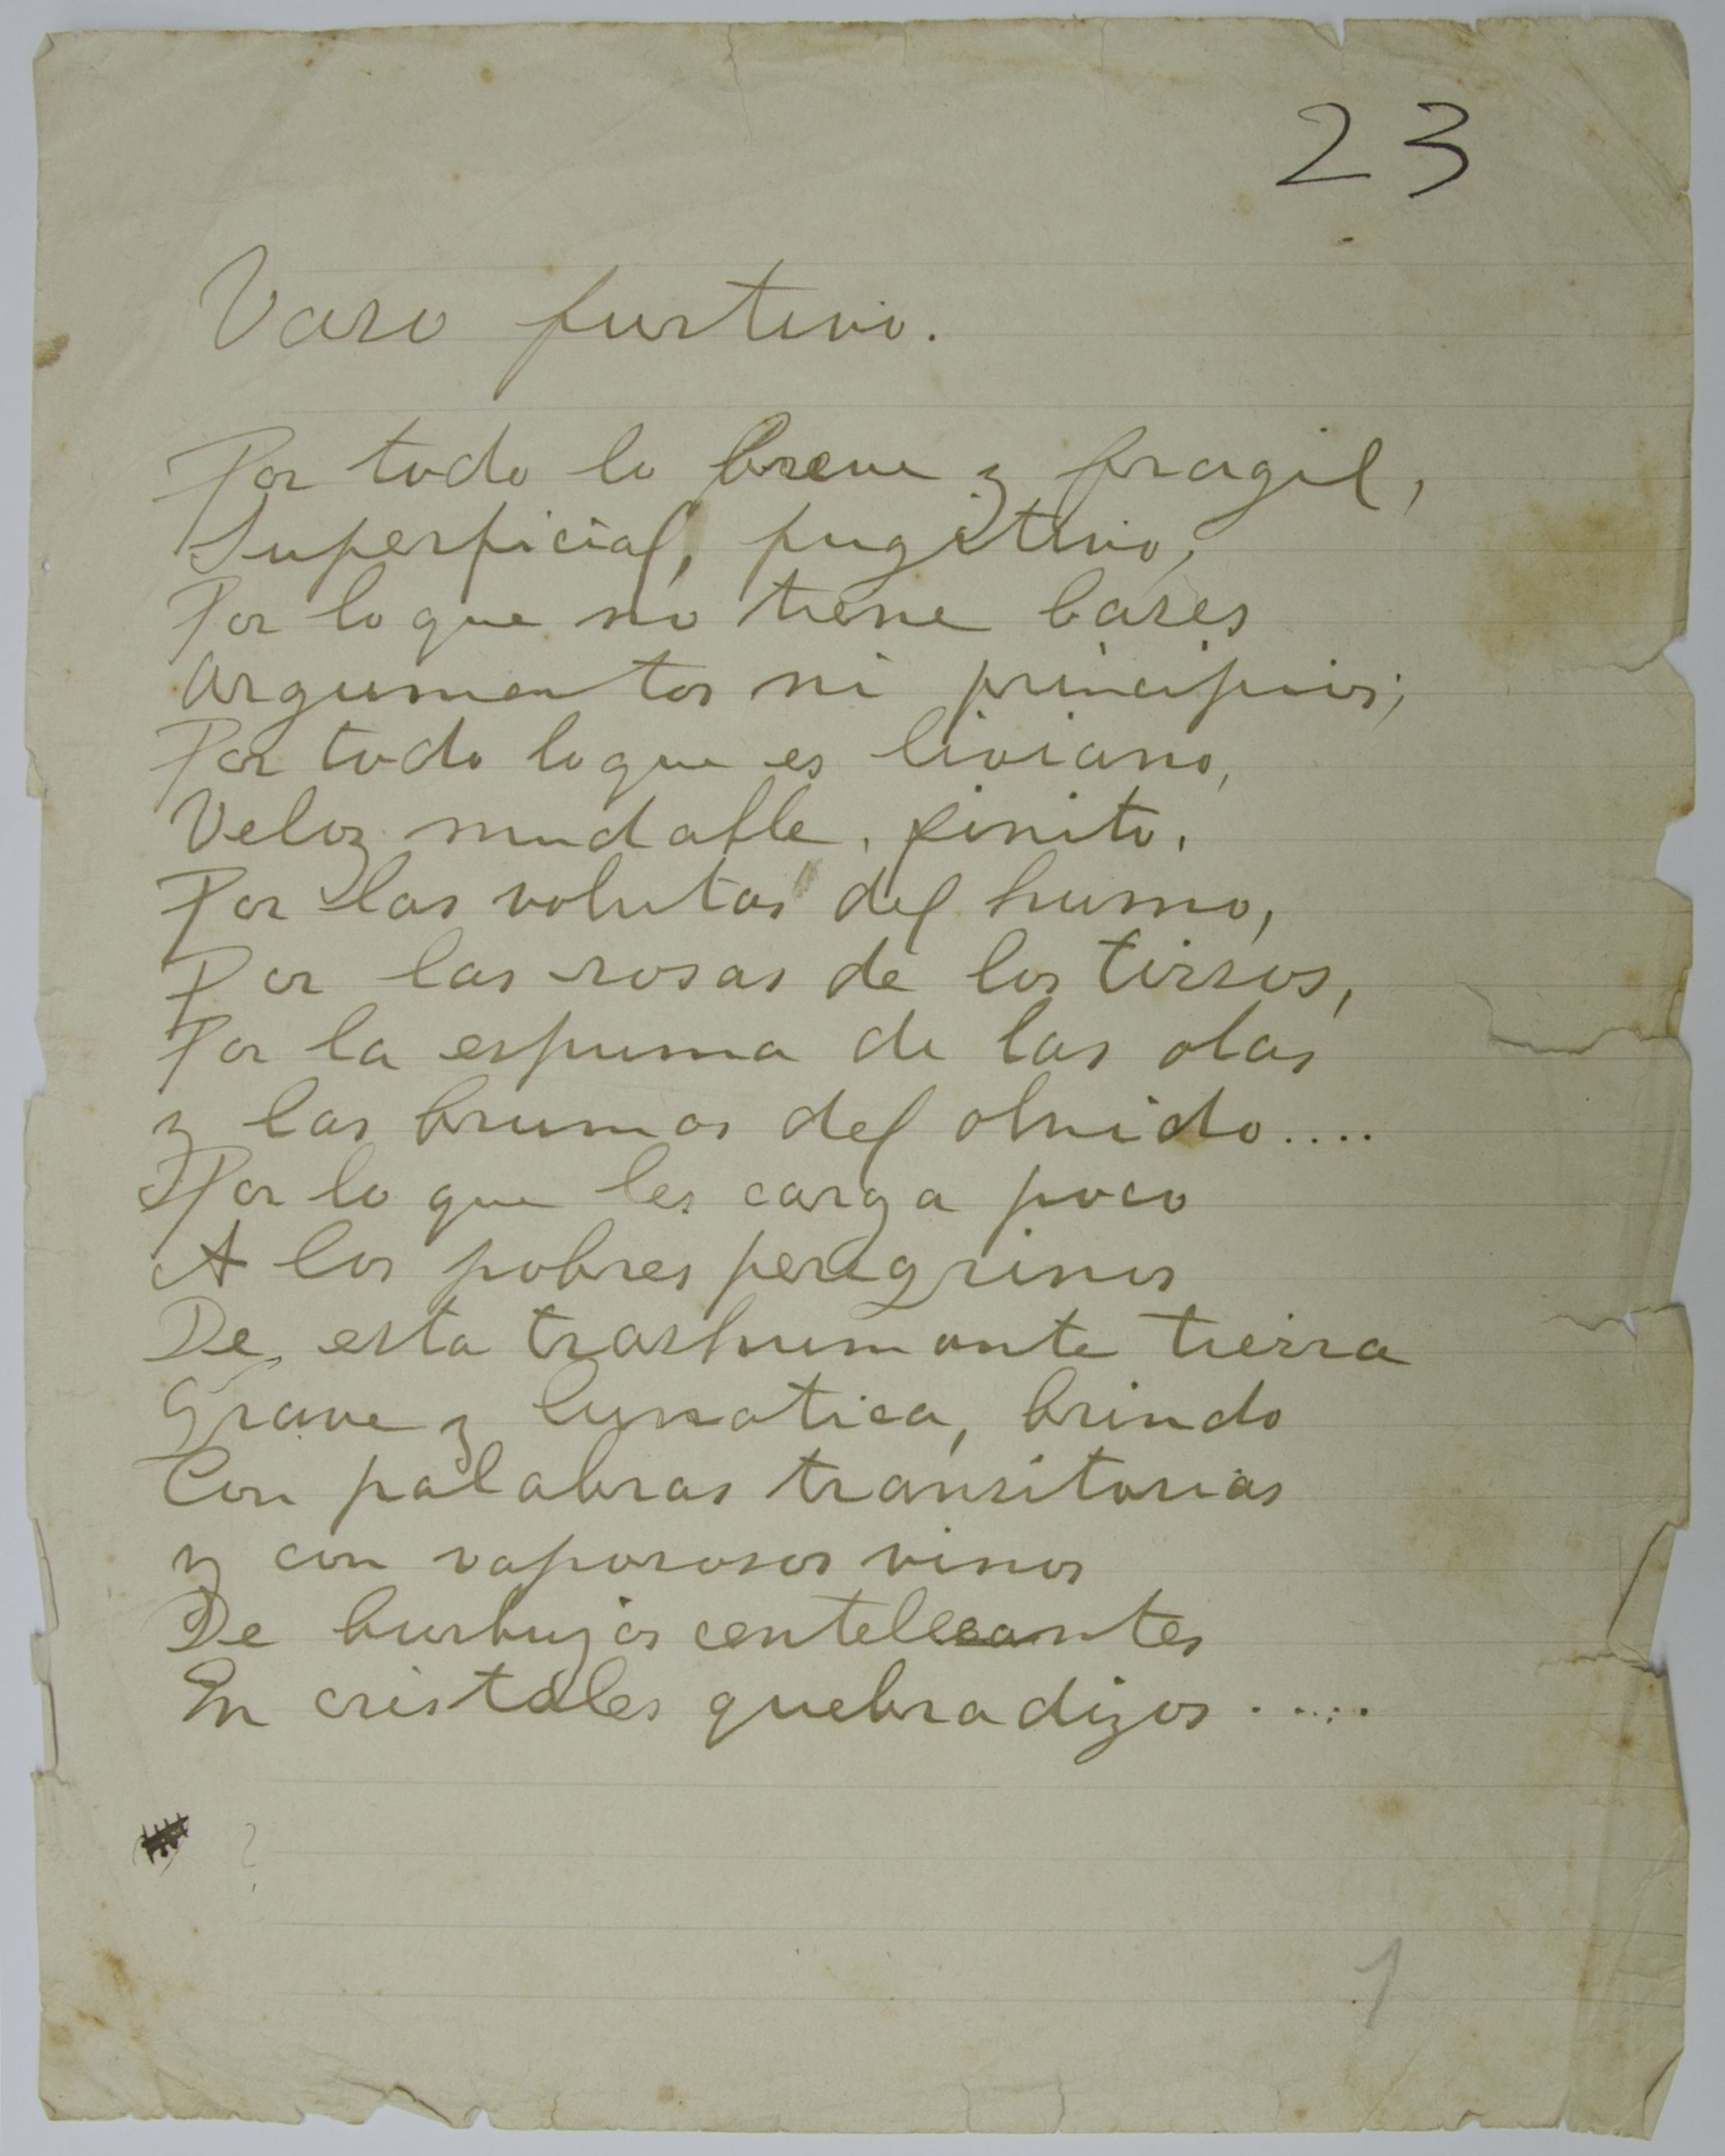 23
Vaso furtivo.
Por todo lo breve y fragil,
Superficial, fugitivo,
Por lo que no tiene bases
Argumentos ni principios;
Por todo lo que es liviano,
Veloz mudable, finito.
Por las volutas del humo,
Por las rosas de los tirsos,
Por la espuma de las olas
y las brumas del olvido....
Por lo que les carga poco
A los pobres peregrinos
De esta trashumante tierra
Grave y lunatica, brindo
Con palabras transitorias
y con vaporosos vinos
De burbujas centelleantes
En cristales quebradizos.....
?
1